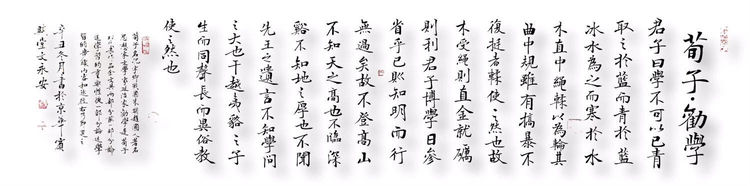 荀子勸學
君子曰學不可以已青
取之於藍而青於藍
冰水為之而寒於水
木直中繩輮以為輪其
曲中規雖有槁暴不
復挺者輮使之然也故
木受繩則直金就礪
則利君子博學日參
省乎己則知明而行
無過矣故不登高山
不知天之高也不臨深
谿不知地之厚也不聞
先王之遺言不知學問
之大也干越夷貉之子
生而同聲長而異俗教
使之然也
荀子名況字卿戰國末期趙國人著名
思想家文學家政治家
辛丑冬月書於京華
文永安